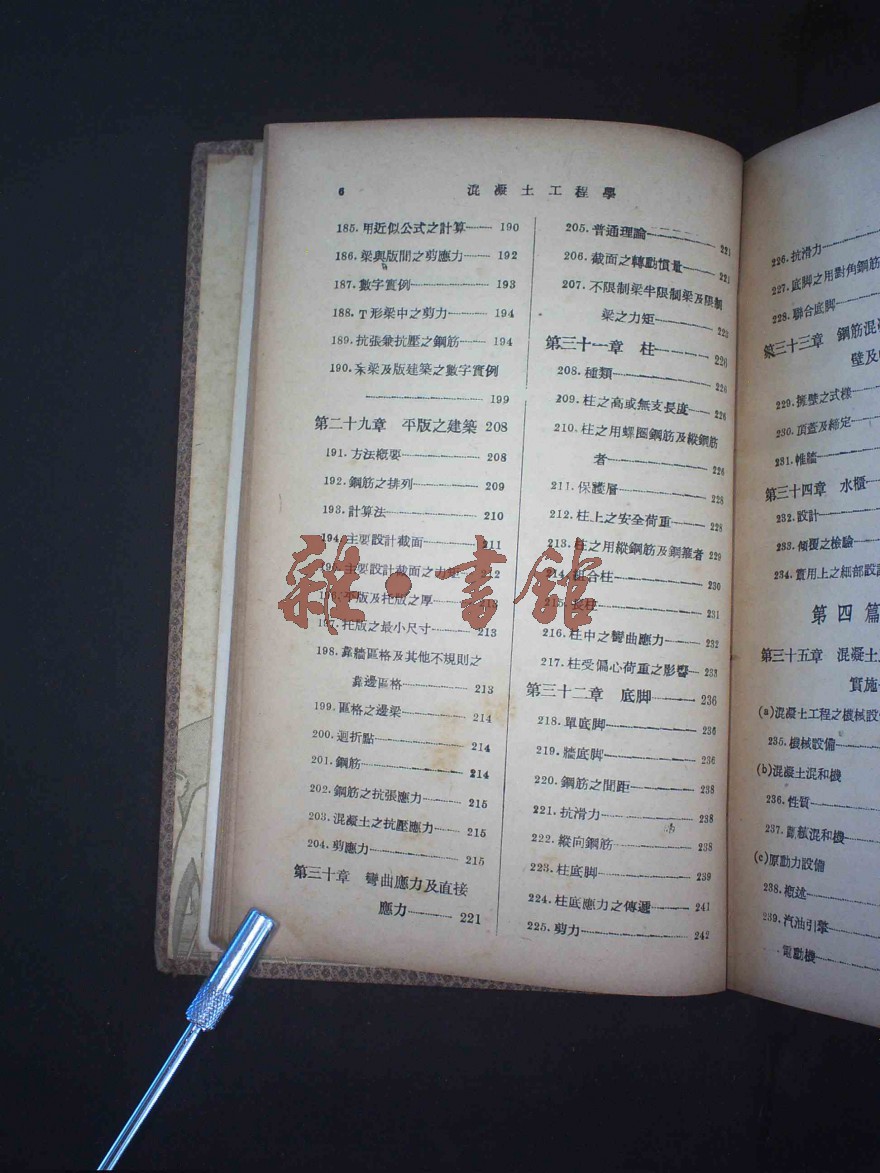 6
混凝土工程學
185. 用近似公式之計算 190
186. 梁與版間之剪應力 192
187. 數字實例 193
188. T形梁中之剪力 194
189. 抗張兼抗壓之鋼筋 194
190. 朱梁及版建築之數字實例
199
第二十九章 平版之建築 208
191. 方法概要 208
192. 鋼筋之排列 209
193. 計算法 210
194. 主要設計截面 211
195. 主要設計截面之力矩 212
196. 平版及托版之厚 213
197. 托版之最小尺寸 213
198. 靠牆區格及其他不規則之
靠邊區格 213
199. 區格之邊梁 214
200. 迴折點 214
201. 鋼筋 214
202. 鋼筋之抗張應力 215
203. 混凝土之抗壓應力 215
204. 剪應力 215
第三十章 彎曲應力及直接
應力 221
205. 普通理論 221
206. 截面之轉動慣量 221
207. 不限制梁半限制梁及限制
梁之力矩 223
第三十一章 柱 226
208. 種類 226
209. 柱之高或無支長度 226
210. 柱之用螺圈鋼筋及縱鋼筋
者 226
211. 保護層 228
212. 柱上之安全荷重 228
213. 柱之用縱鋼筋及鋼箍者 229
214. 組合柱 230
215. 長柱 231
216. 柱中之彎曲應力 232
217. 柱受偏心荷重之影響 233
第三十二章 底脚 236
218. 單底脚 236
219. 牆底脚 236
220. 鋼筋之間距 238
221. 抗滑力 238
222. 縱向鋼筋 238
223. 柱底脚 239
224. 柱底應力之傳遞 241
225. 剪力 242
226. 抗滑力
227. 底脚之用對角鋼筋
228. 聯合底脚
第三十三章 鋼筋混
壁及
229. 擁壁之式樣
230. 頂蓋及締定
231. 帷牆
第三十四章 水櫃
232. 設計
233. 傾覆之檢驗
234. 實用上之細部設
第四篇
第三十五章 混凝土
實施
(a)混凝土工程之機械設
235. 機械設備
(b)混凝土混和機
236. 性質
237. 鼓瓤混和機
(c)原動力設備
238. 概述
239. 汽油引擎
電動機
雜·書館